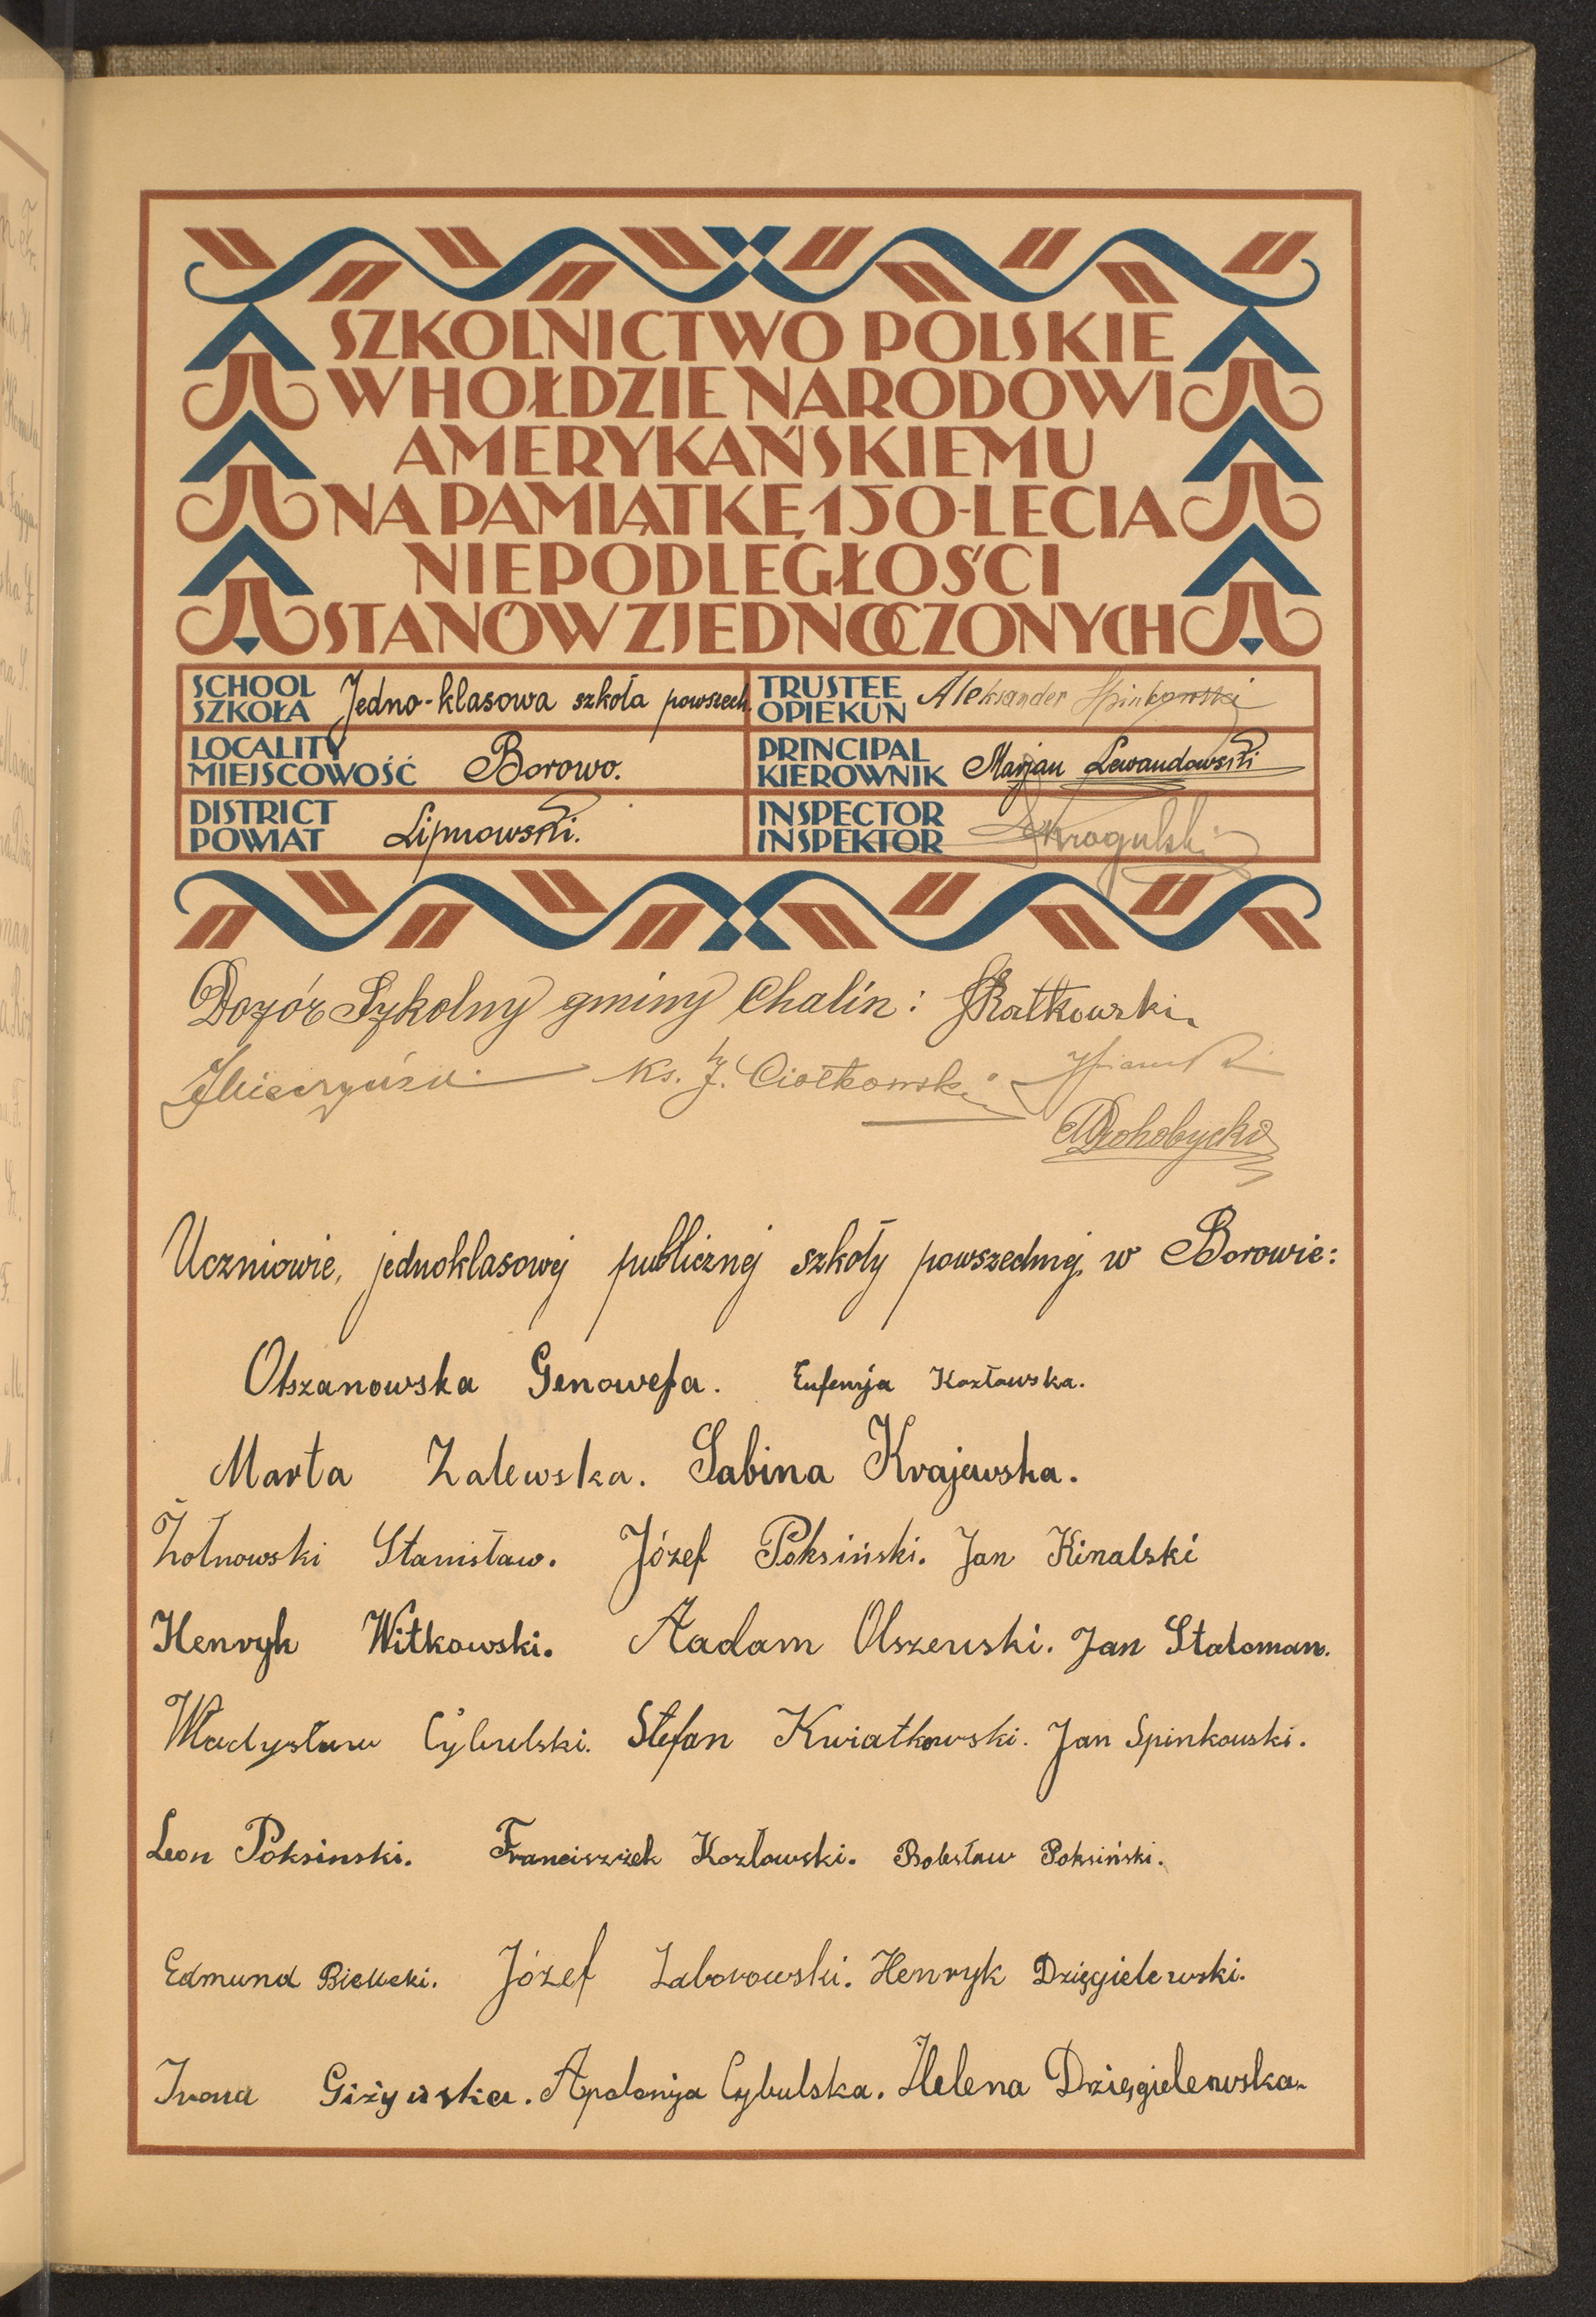 SZKOLNICTWO POLSKIE
W HOŁDZIE NARODOWI
AMERYKAŃSKIEMU
NA PAMIĄTKĘ 150-LECIA
NIEPODLEGŁOŚCI
STANÓW ZJEDNOCZONYCH
SCHOOL
SZKOŁA Jedno-klasowa szkoła powszech.
TRUSTEE
OPIEKUN Aleksander Spinkowski
LOCALITY
MIEJSCOWOŚĆ Borowo.
PRINCIPAL
KIEROWNIK Marjan Lewandowski
DISTRICT
POWIAT Lipnowski.
INSPECTOR
INSPEKTOR
Dozór Szkolny gminy Chalin: Ratkowski
Ks. J. Ciołkowski
Drohobycki
Uczniowie, jednoklasowej publicznej szkoły powszechnej w Borowie:
Olszanowska Genowefa. Eufemja Kozłowska.
Marta Zalewska. Sabina Krajewska.
Żołnowski Stanisław. Józef Poksiński. Jan Kinalski
Henryk Witkowski. Aadam Olszewski. Jan Statoman.
Władysław Cybulski. Stefan Kwiatkowski. Jan Spinkowski.
Leon Poksinski. Franciszek Kozłowski. Bolesław Poksiński.
Edmund Bielicki. Józef Zaborowski. Henryk Dzięgielewski.
Irena Giżyńska. Apolonja Cybulska. Helena Dzięgielewska.